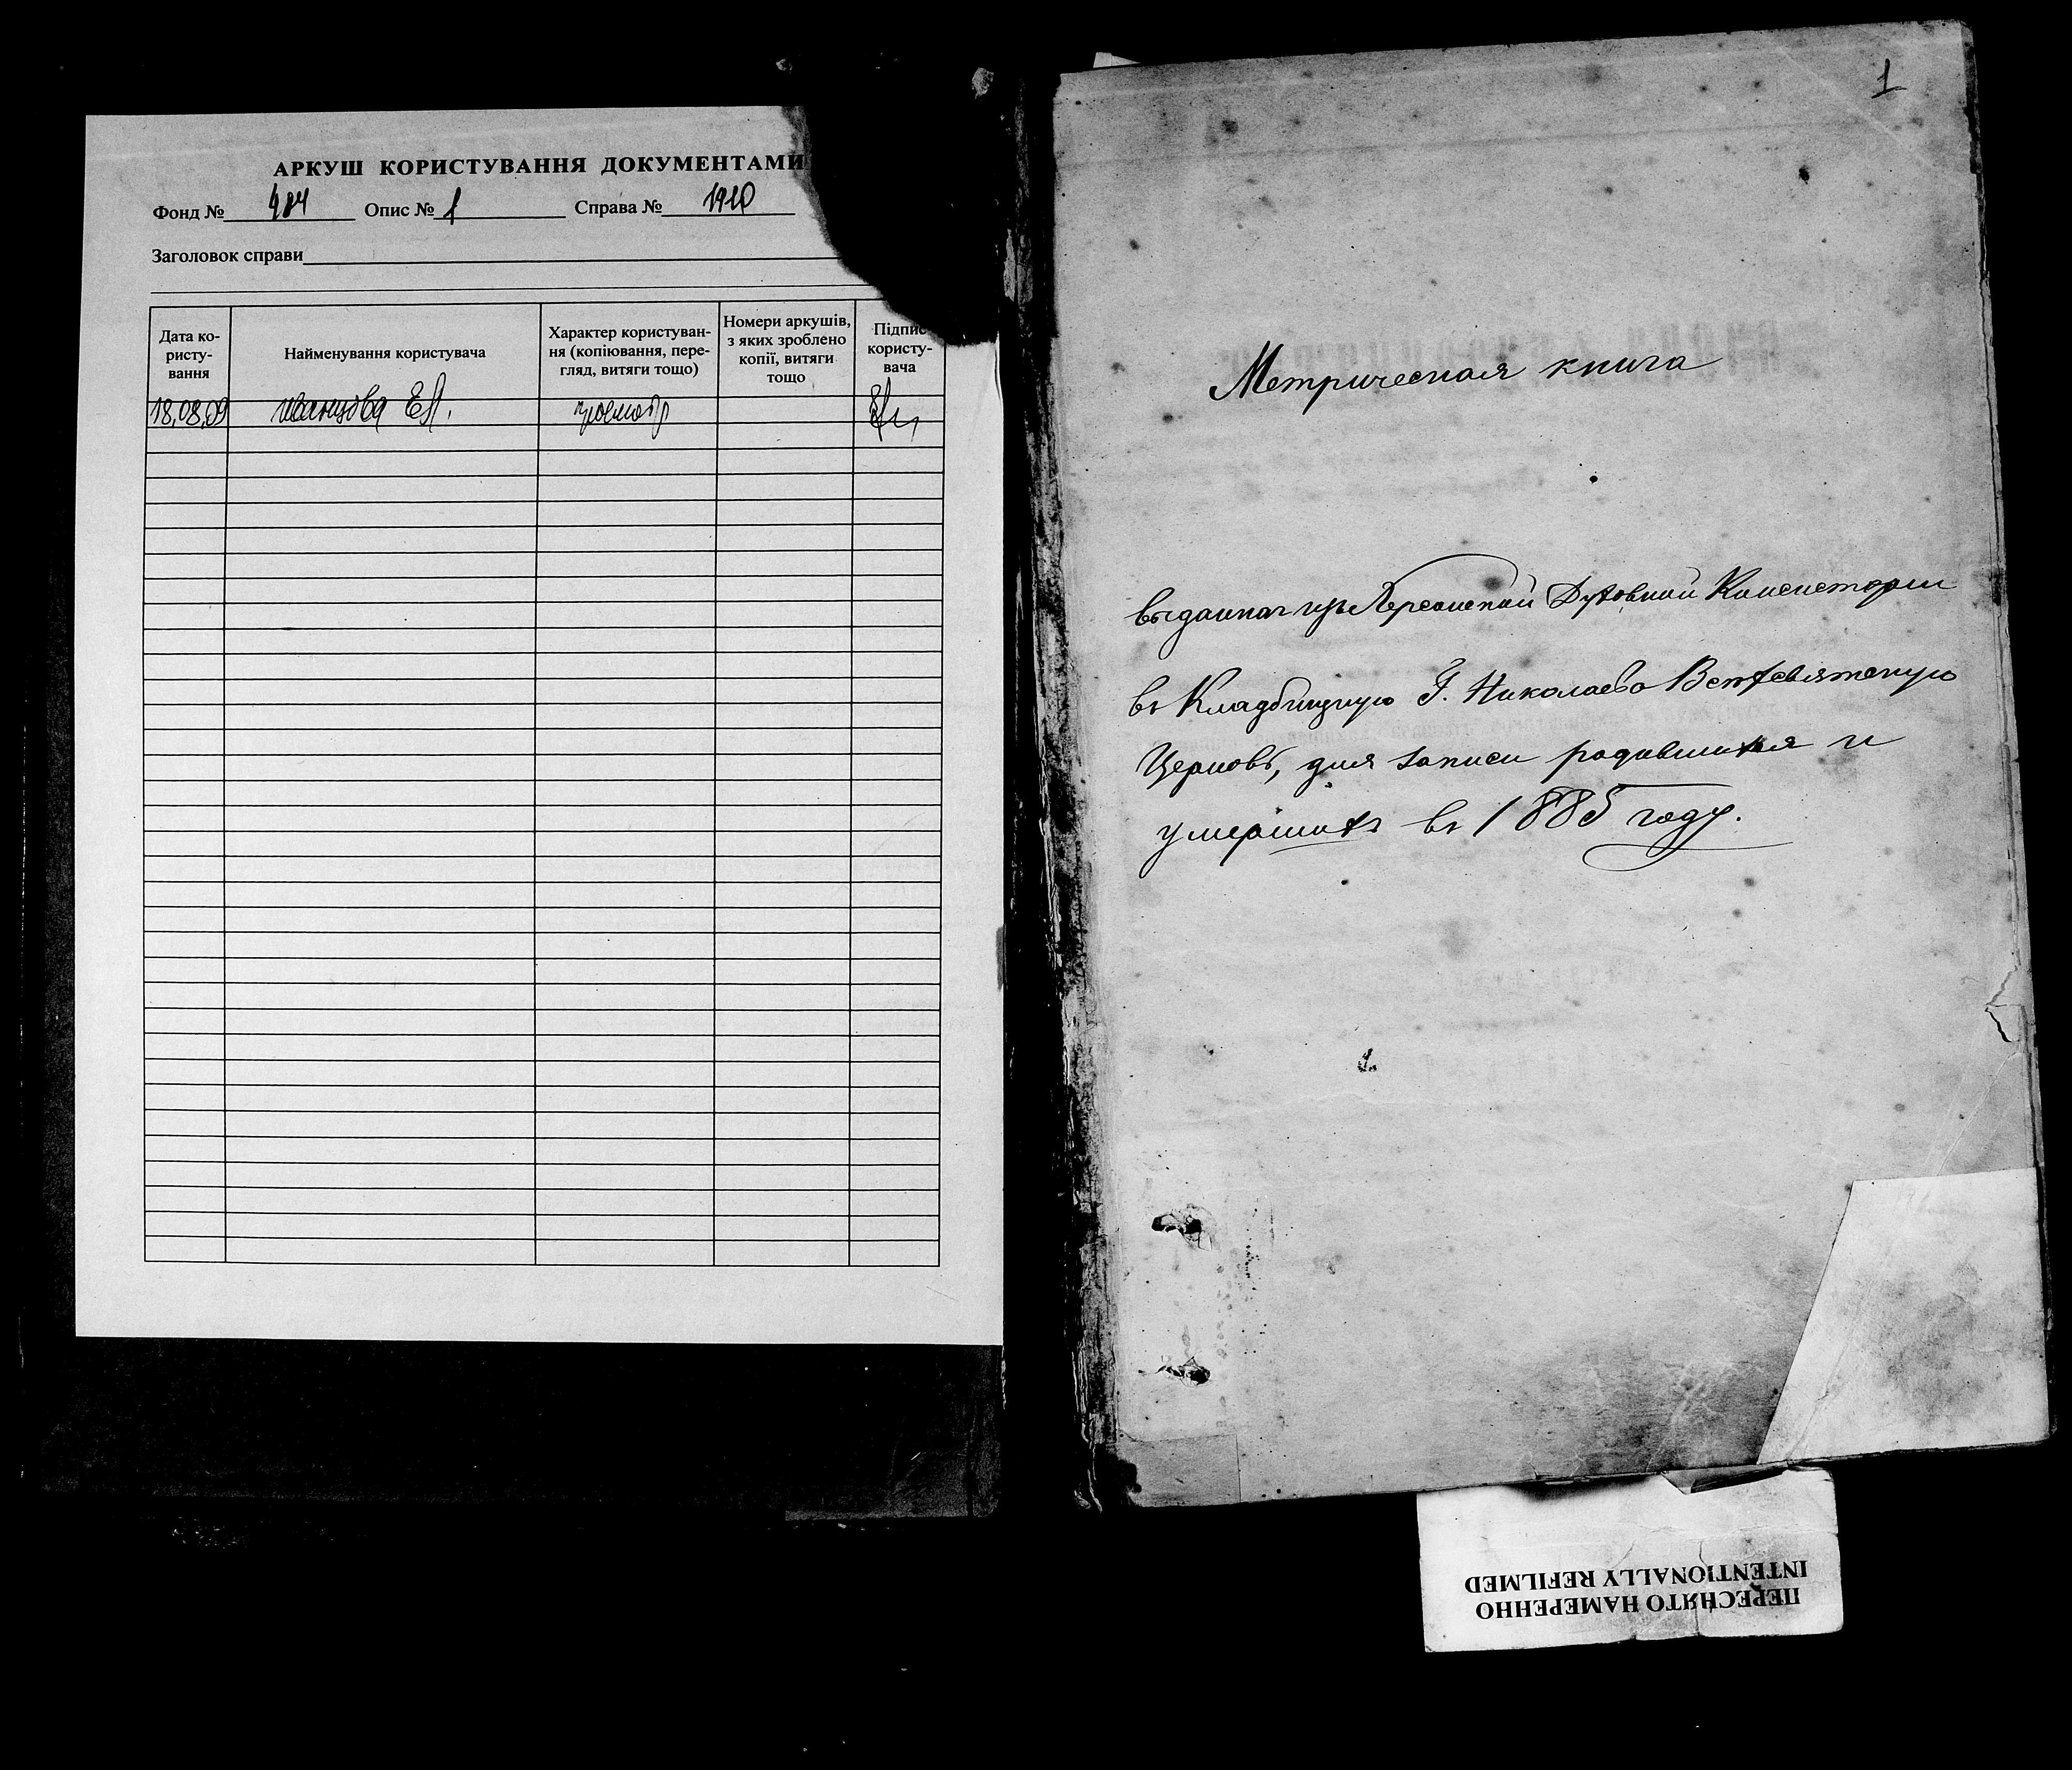 АРКУШ КОРИСТУВАННЯ ДОКУМЕНТАМИ
Фонд № 484 Опис № 1 Справа № 1910
Заголовок справи
Дата ко-
ристу-
вання
Найменування користувача
Характер користуван-
ня (копіювання, пере-
гляд, витяги тощо)
Номери аркушів,
з яких зроблено
копії, витяги
тощо
Підпис
користу-
вача
18.08.09
1
Метрическая книга
выданная изъ Херсонской Духовной Консистории
въ Кладбищную Г. Николаева
Церковь, для записи родившихся и
умершихъ въ 1885 году.
ПЕРЕСНЯТО НАМЕРЕННО
INTENTIONALLY REFILMED